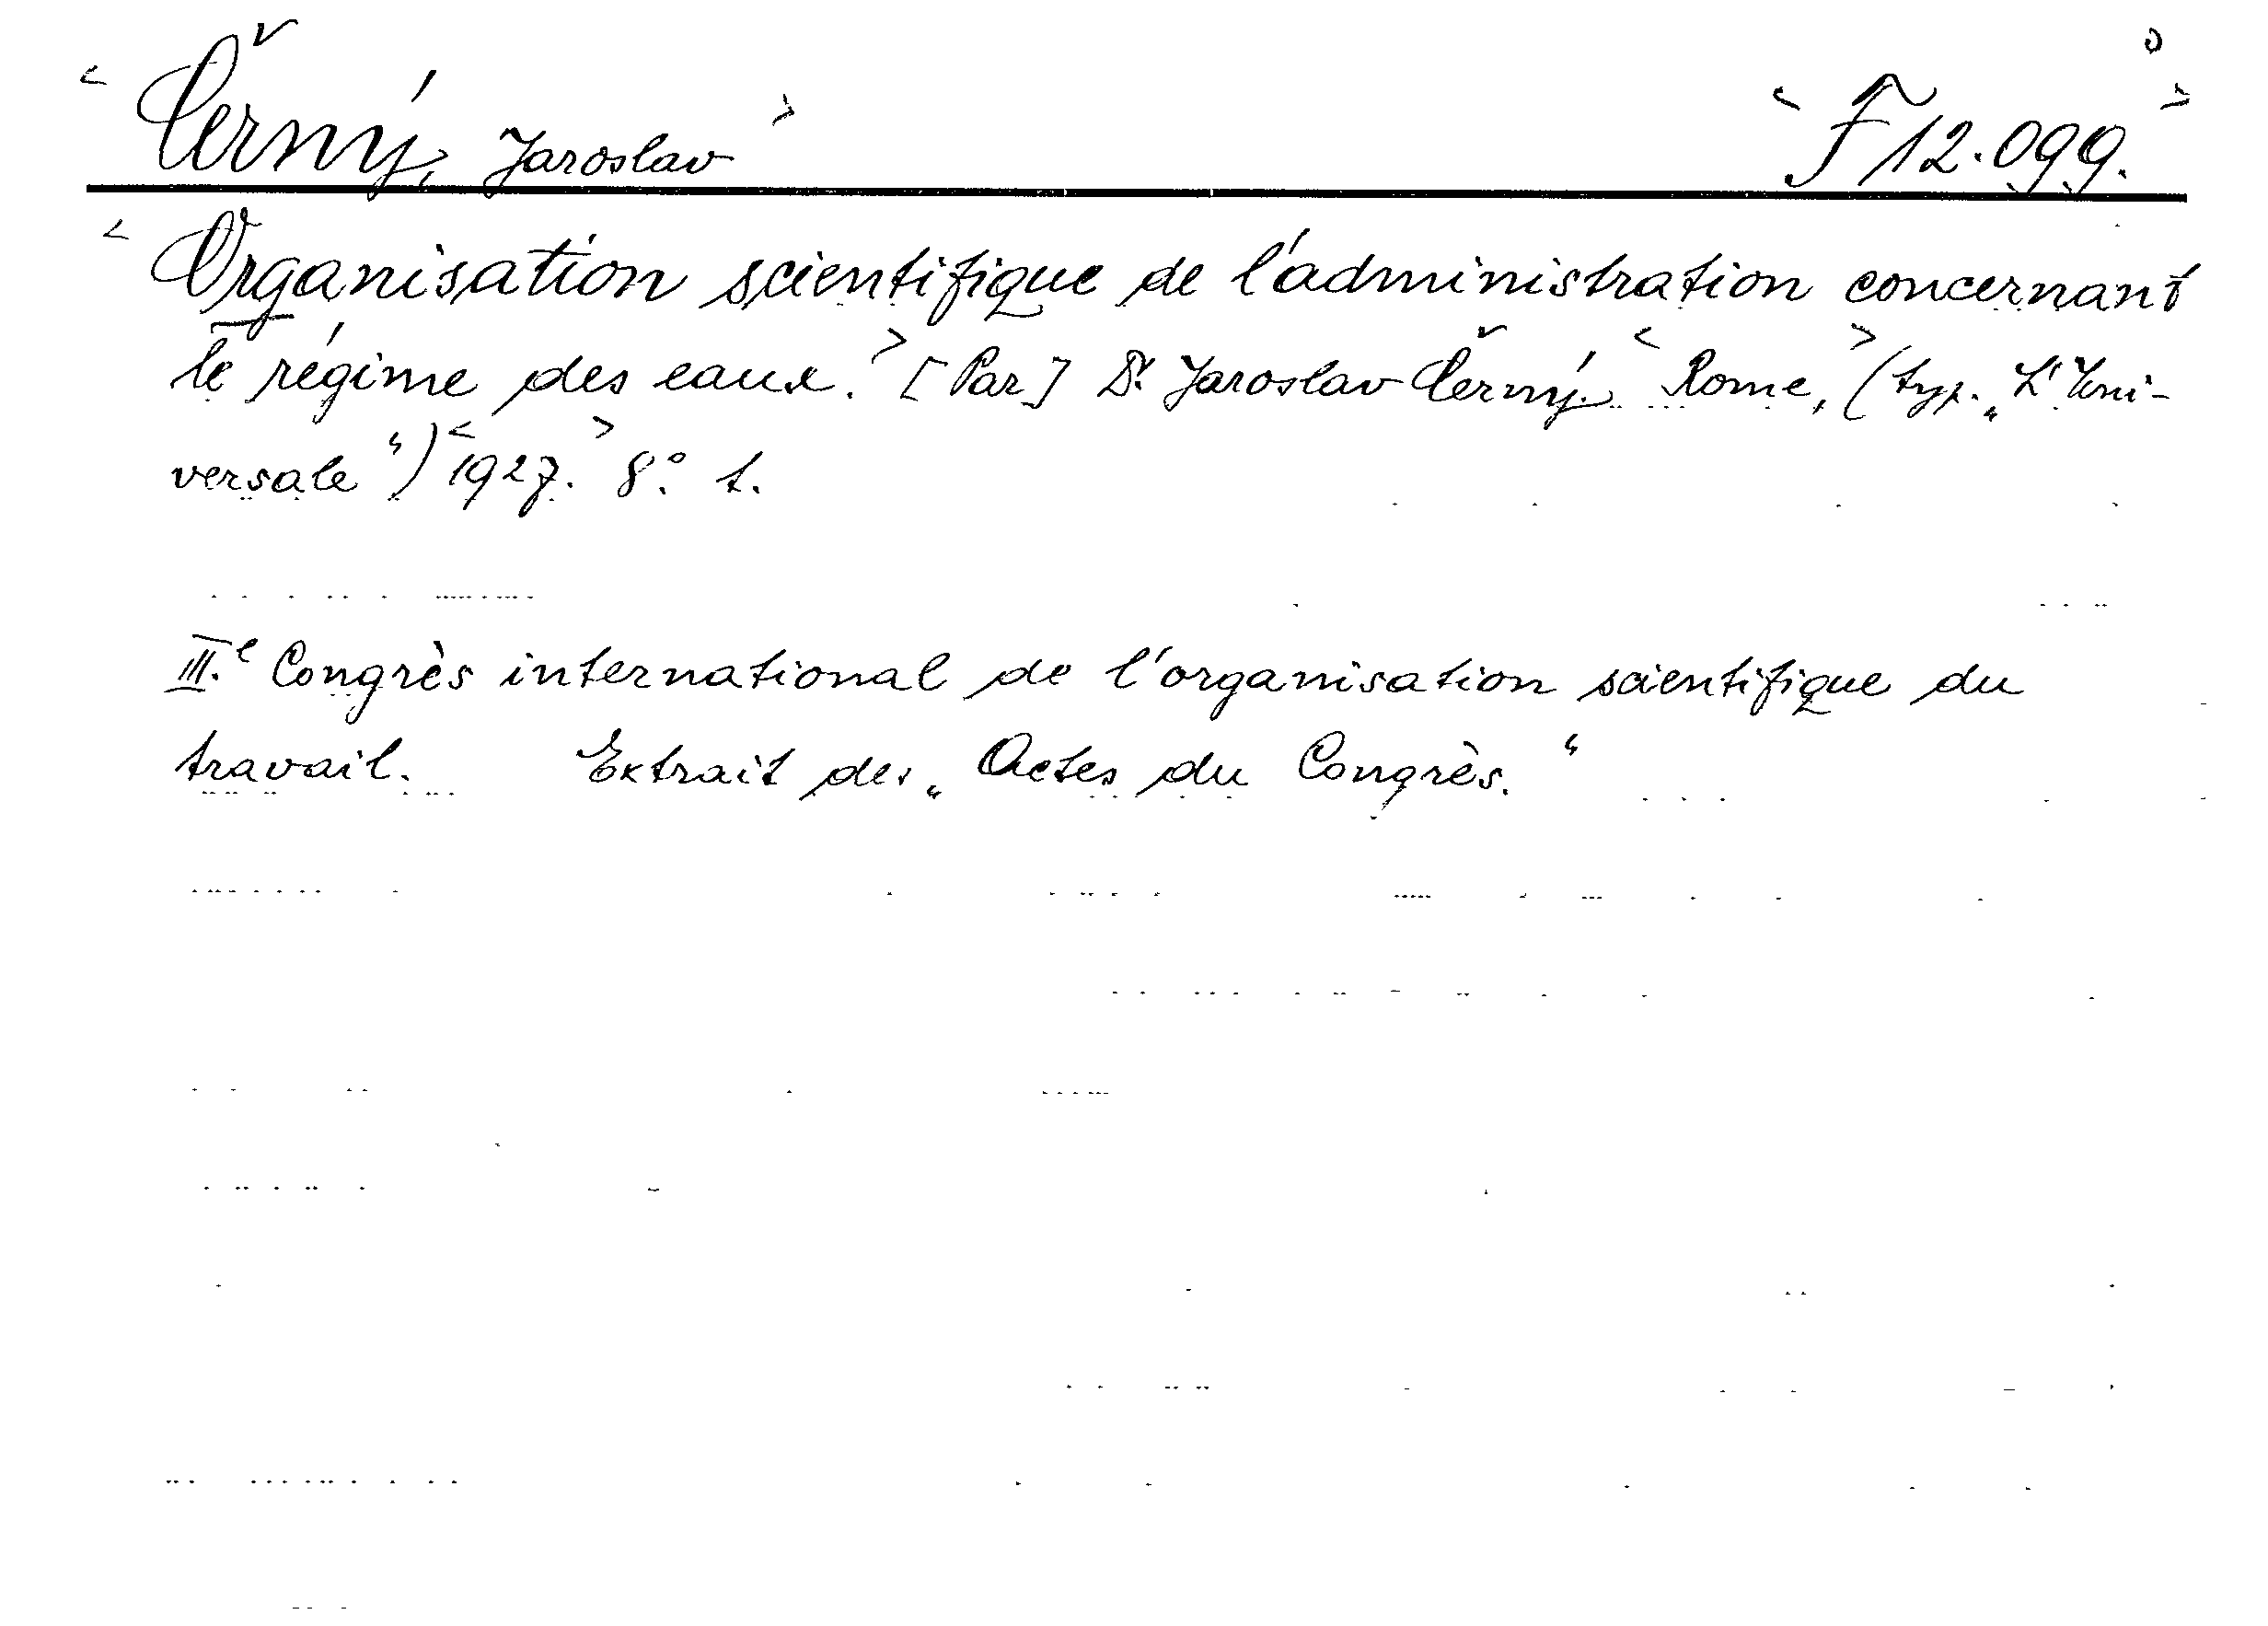 < Černý, Jaroslav > < F 12.099. >
< Organisation scientifique de l'administration concernant
le régime des eaux. > [Par] Dr. Jaroslav Černý. < Rome, > (typ. „L'Uni-
versale“) < 1927. > 8.° t.
III.e Congrès international de l'organisation scientifique du
travail. Extrait des „Actes du Congrès.“